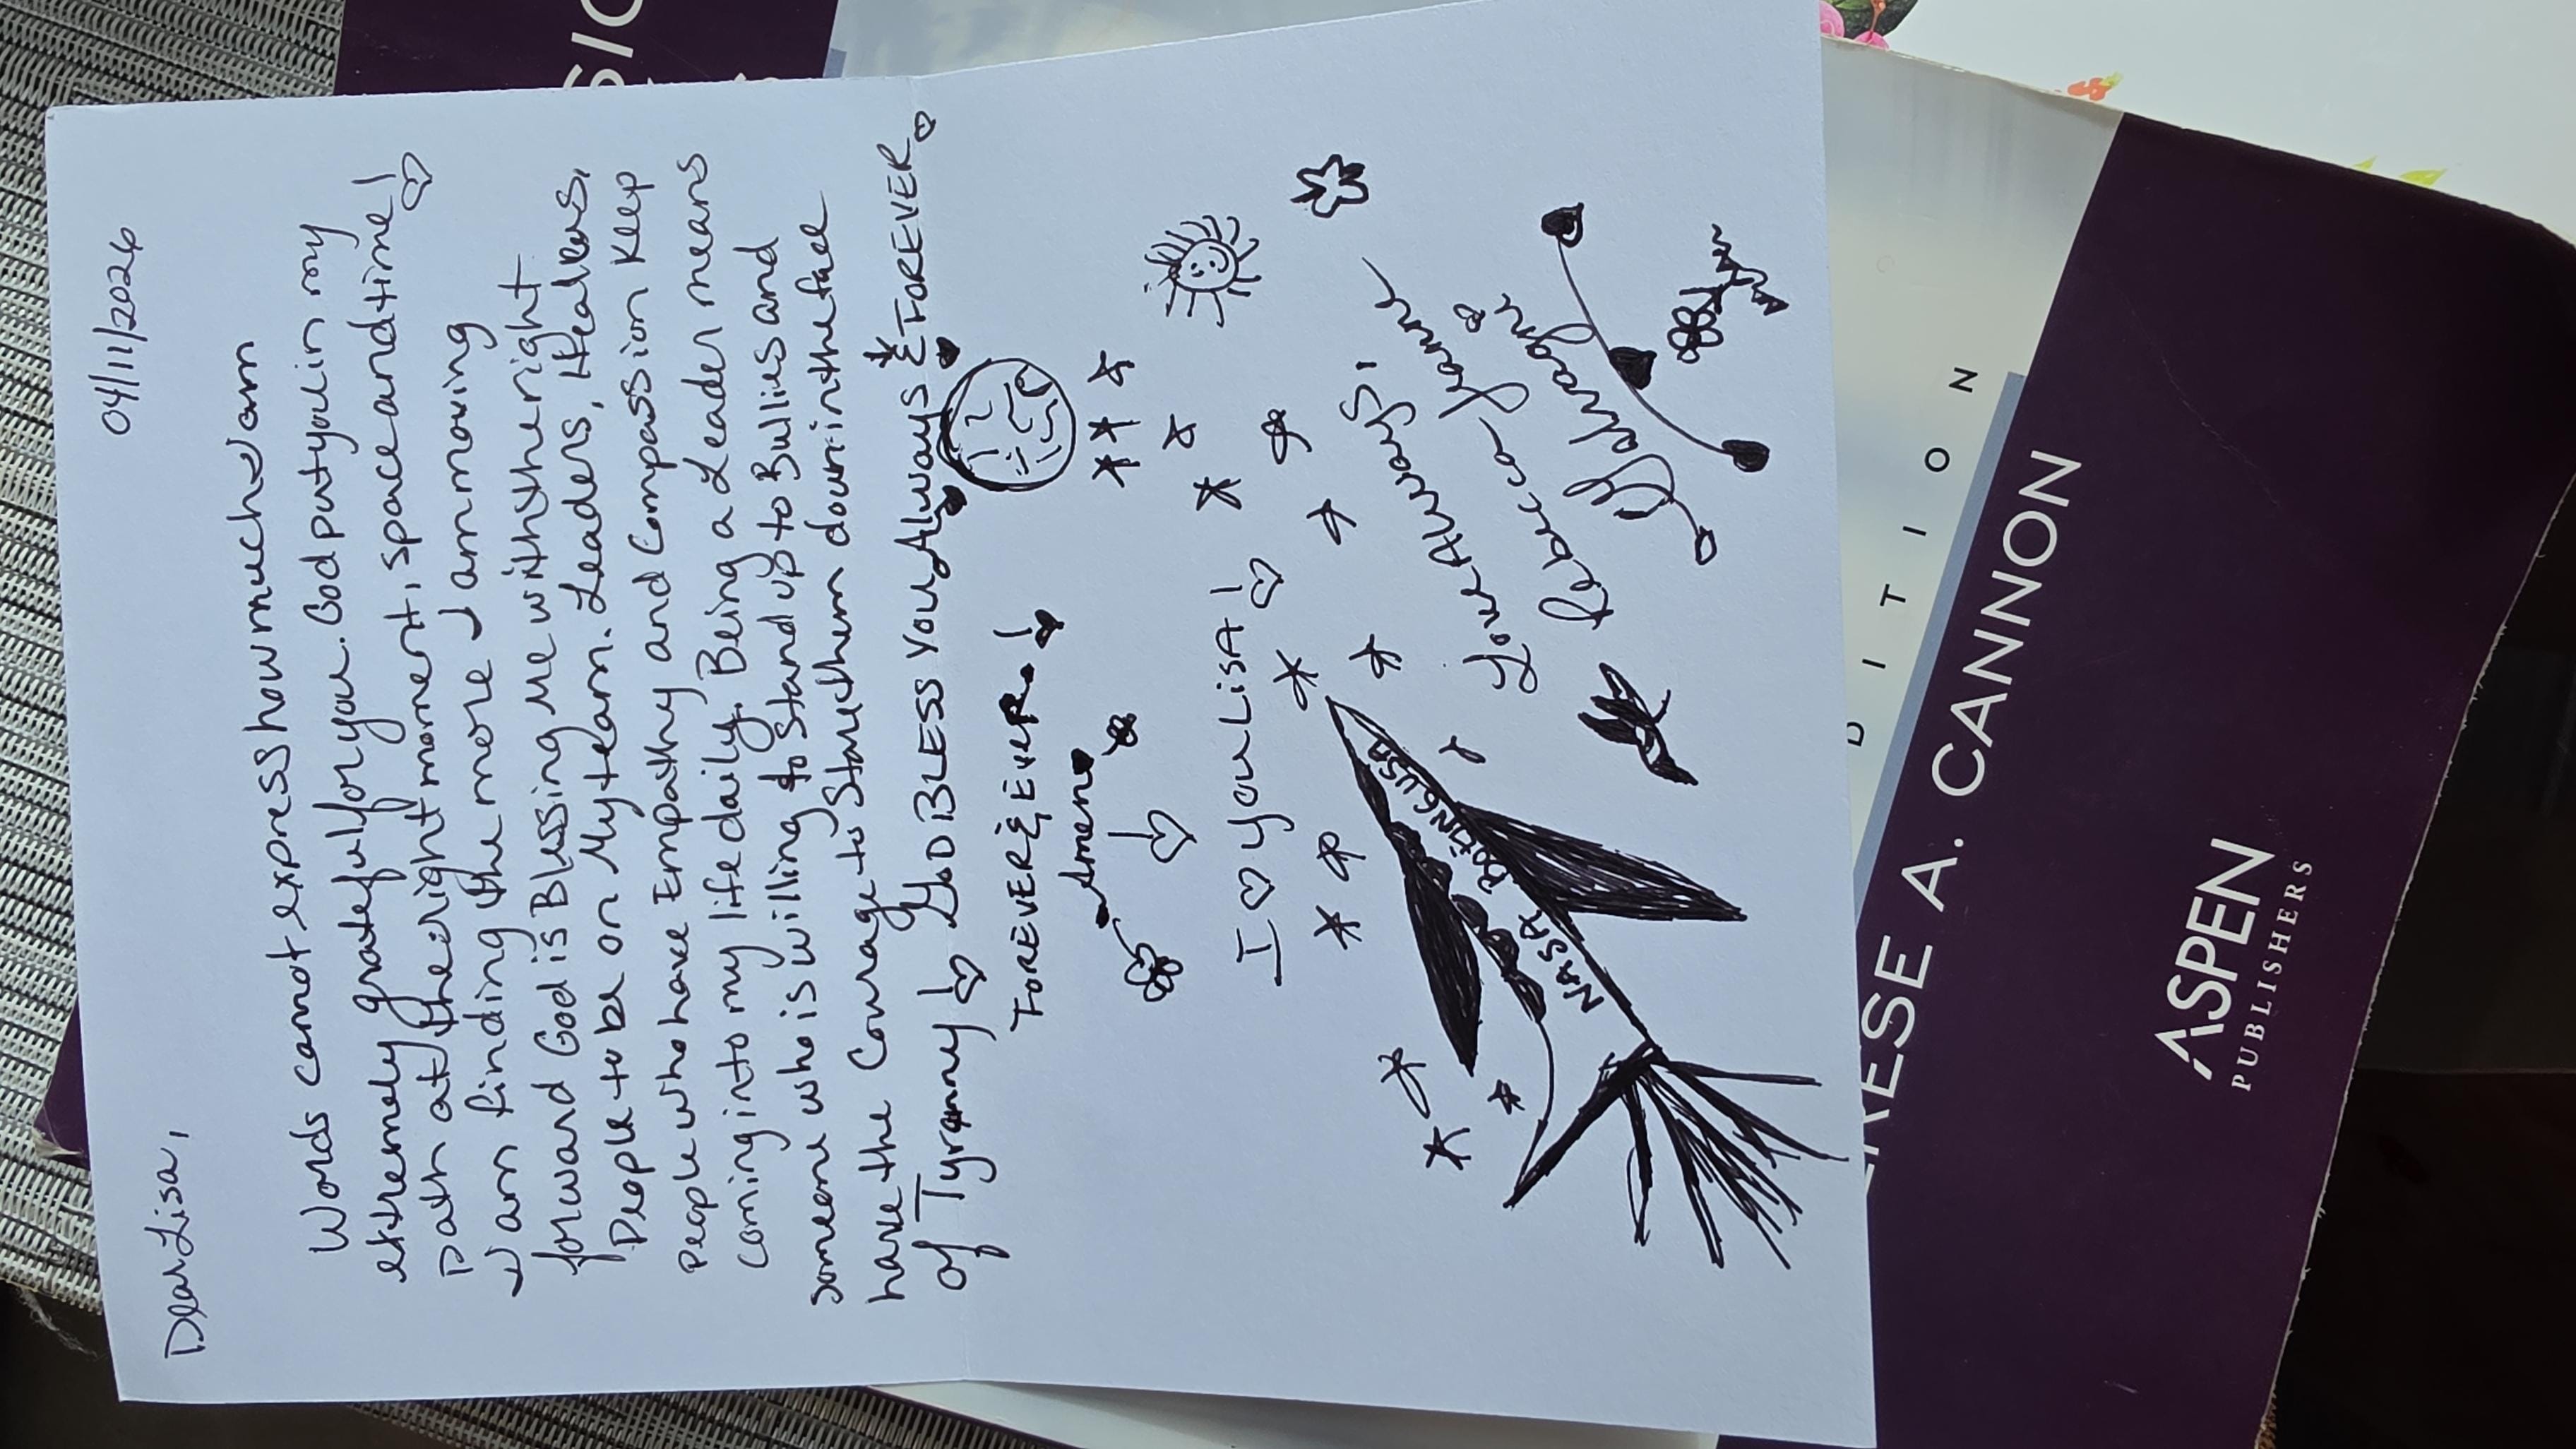 04/11/2026
Dear Lisa,
Words cannot express how much I am
extremely grateful for you. God put you in my
path at the right moment, space and time!
I am finding the more I am moving
forward God is Blessing Me with the right
People to be on My team. Leaders, Healers,
People who have Empathy and Compassion Keep
coming into my life daily. Being a Leader means
someone who is willing to Stand up to Bullies and
have the Courage to Stare them down in the face
of Tyranny! God BLESS YOU Always & FOREVER
FOREVER & EVER!
Amen
I ♡ you LISA!
NASA BOEING USA
Love Always,
Rebecca Jeanne
DITION
ESE A. CANNON
ASPEN
PUBLISHERS